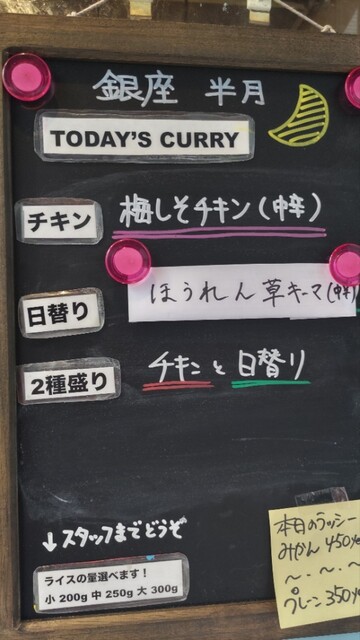 銀座 半月
TODAY'S CURRY
チキン 梅しそチキン(中辛)
日替り ほうれん草キーマ(中辛)
2種盛り チキンと日替り
↓スタッフまでどうぞ
ライスの量選べます!
小 200g 中 250g 大 300g
本日のラッシー
みかん 450yen
〜・〜・〜
プレーン 350yen